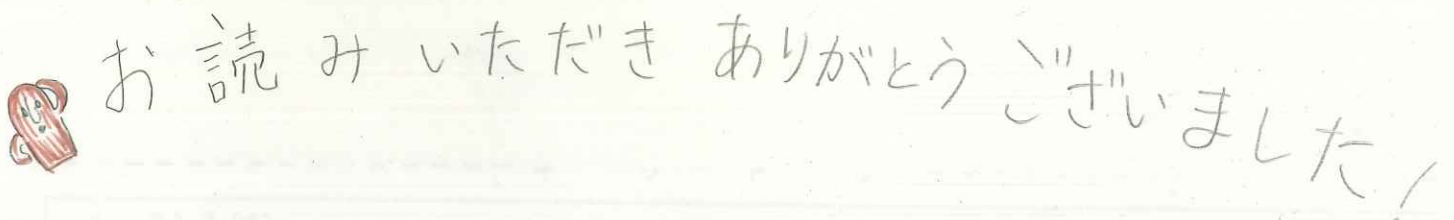 お読みいただきありがとうございました!